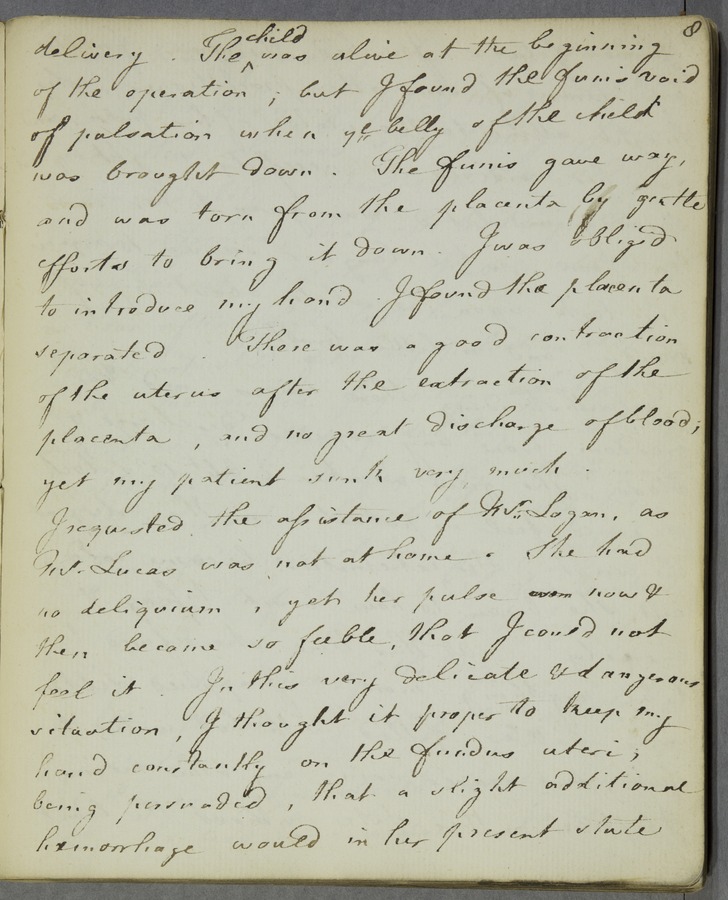 8
delivery. The ^child was alive at the beginning
of the operation; but I found the funis void
of pulsation when ye belly of the child
was brought down. The funis gave way,
and was torn from the placenta by gentle
efforts to bring it down. I was obliged
to introduce my hand. I found the placenta
separated. There was a good contraction
of the uterus after the extraction of the
placenta, and no great discharge of blood;
yet my patient sunk very much.
I requested the assistance of Mr. Logan, as
Mr. Lucas was not at home. She had
no deliquium, yet her pulse now &
then became so feeble, that I could not
feel it. In this very delicate & dangerous
situation, I thought it proper to keep my
hand constantly on the fundus uteri;
being persuaded, that a slight additional
hemorrhage would in her present state